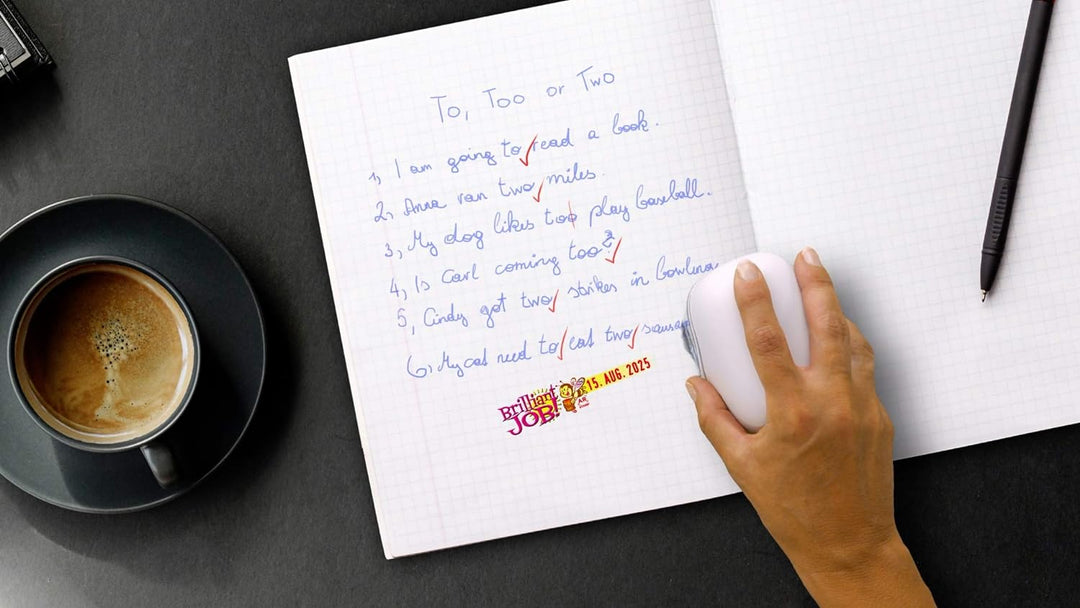 To, Too or Two
1, I am going to read a book.
2, Anna ran two miles.
3, My dog likes too play baseball.
4, Is Carl coming too?
5, Cindy got two strikes in bowling
6, My cat need to eat two
Brilliant JOB! 15. AUG. 2025